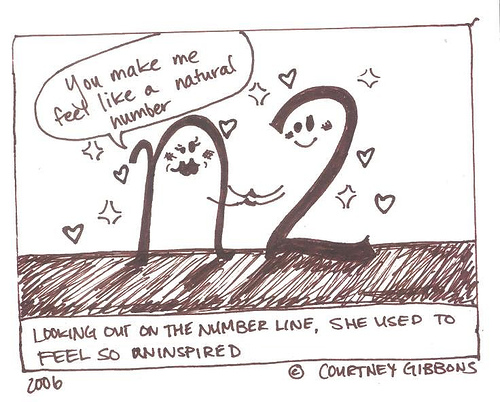 You make me
feel like a natural
number
n2
LOOKING OUT ON THE NUMBER LINE, SHE USED TO
FEEL SO UNINSPIRED
2006
© COURTNEY GIBBONS